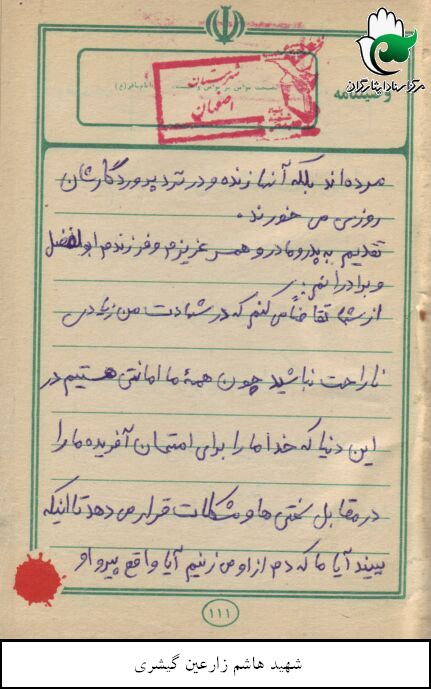 مرکز اسناد ایثارگران
وصیتنامه
شهرستان
اصفهان
مرده‌اند بلکه آنها زنده و در نزد پروردگارشان
روزی می خورند.
تقدیم به پدر و مادر و همسر عزیزم و فرزندم ابوالفضل
و برادرانم:
از شما تقاضا می کنم که در شهادت من زیادی
ناراحت نباشید چون همهٔ ما امانتی هستیم در
این دنیا که خدا ما را برای امتحان آفریده ما را
در مقابل سختی ها و مشکلات قرار می دهد تا اینکه
ببیند آیا ما که دم از او می زنیم آیا واقع پیرو او
۱۱۱
شهید هاشم زارعین گیشری